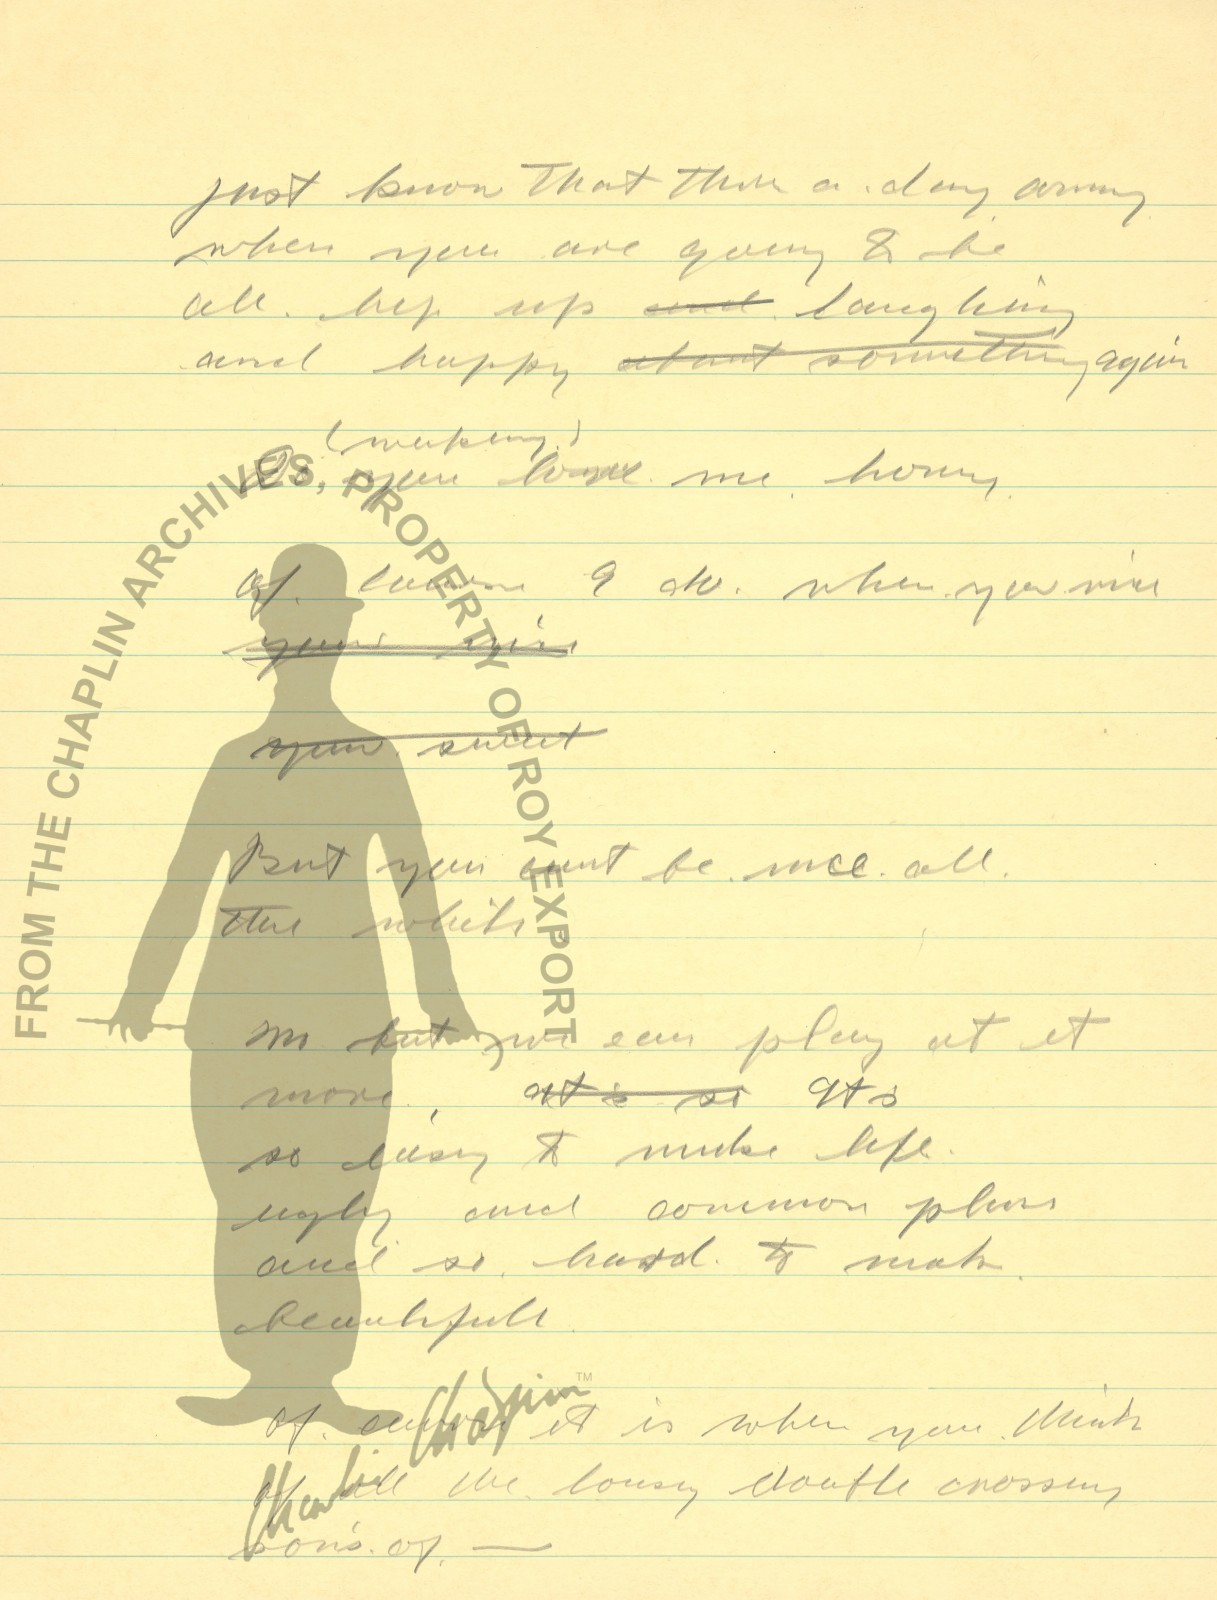 just know that there a day coming
when you are going to be
all hep up and laughing
and happy about something again
(weeping)
Do you love me honey
of course I do. when you nice
your nice
your sweet
But you cant be nice all
the while
No but we can play at it
more, it's so Its
so easy to make life
ugly and common place
and so hard to make
beautifull
of course it is when you think
of all the lousy double crossing
sons of —
FROM THE CHAPLIN ARCHIVES, PROPERTY OF ROY EXPORT
Charlie Chaplin™